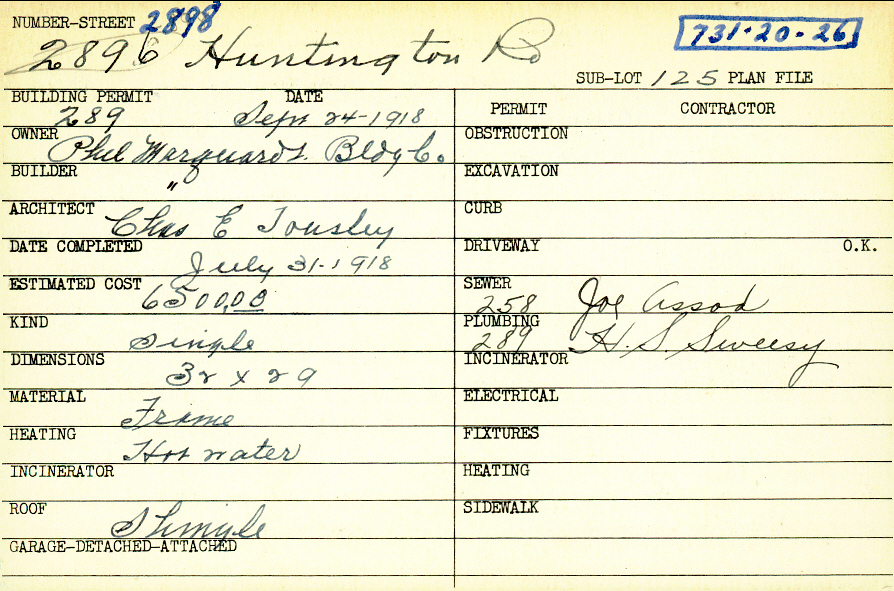 NUMBER-STREET 2898
2896 Huntington Rd
731-20-26
SUB-LOT 125 PLAN FILE
BUILDING PERMIT DATE
289 Sept 24-1918
OWNER Phil Marquardt Bldg Co.
BUILDER "
ARCHITECT Chas E Tousley
DATE COMPLETED July 31-1918
ESTIMATED COST 6500.00
KIND Single
DIMENSIONS 32 x 29
MATERIAL Frame
HEATING Hot water
INCINERATOR
ROOF Shingle
GARAGE-DETACHED-ATTACHED
PERMIT CONTRACTOR
OBSTRUCTION
EXCAVATION
CURB
DRIVEWAY O.K.
SEWER 258 Joe Assad
PLUMBING 289 H. S. Sweesy
INCINERATOR
ELECTRICAL
FIXTURES
HEATING
SIDEWALK